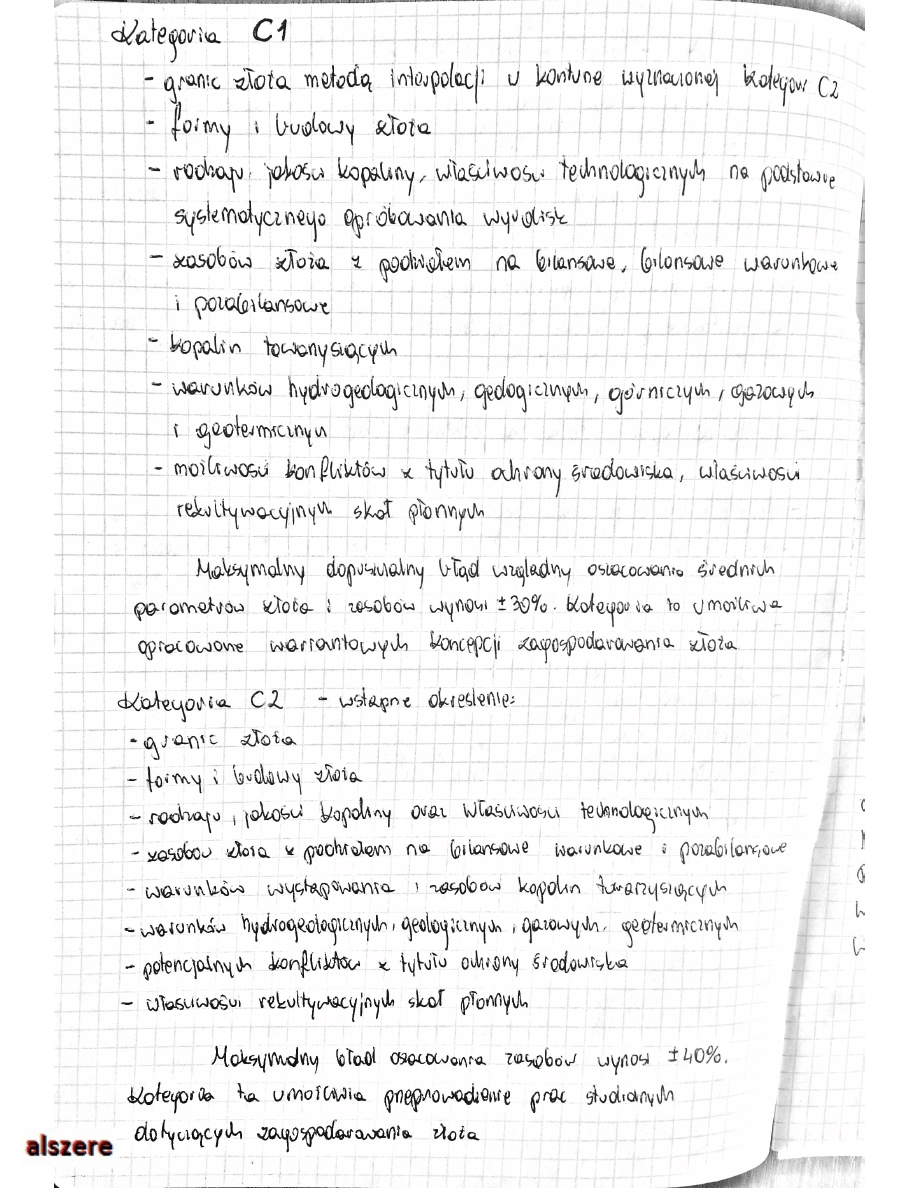 Kategoria C1
- granic złoża metodą interpolacji w konturze wyznaczonej kategorią C2
- formy i budowy złoża
- rodzaju, jakości kopaliny, właściwości technologicznych na podstawie
systematycznego opróbowania wyrobisk
- zasobów złoża z podziałem na bilansowe, bilansowe warunkowe
i pozabilansowe
- kopalin towarzyszących
- warunków hydrogeologicznych, geologicznych, górniczych, gazowych
i geotermicznych
- możliwości konfliktów z tytułu ochrony środowiska, właściwości
rekultywacyjnych skał płonnych
Maksymalny dopuszczalny błąd względny oszacowania średnich
parametrów złoża i zasobów wynosi ±30%. Kategoria ta umożliwia
opracowanie wariantowych koncepcji zagospodarowania złoża
Kategoria C2 - wstępne określenie:
- granic złoża
- formy i budowy złoża
- rodzaju, jakości kopaliny oraz właściwości technologicznych
- zasobów złoża z podziałem na bilansowe warunkowe i pozabilansowe
- warunków występowania i zasobów kopalin towarzyszących
- warunków hydrogeologicznych, geologicznych, gazowych, geotermicznych
- potencjalnych konfliktów z tytułu ochrony środowiska
- właściwości rekultywacyjnych skał płonnych
Maksymalny błąd oszacowania zasobów wynosi ±40%.
Kategoria ta umożliwia przeprowadzenie prac studialnych
dotyczących zagospodarowania złoża
alszere